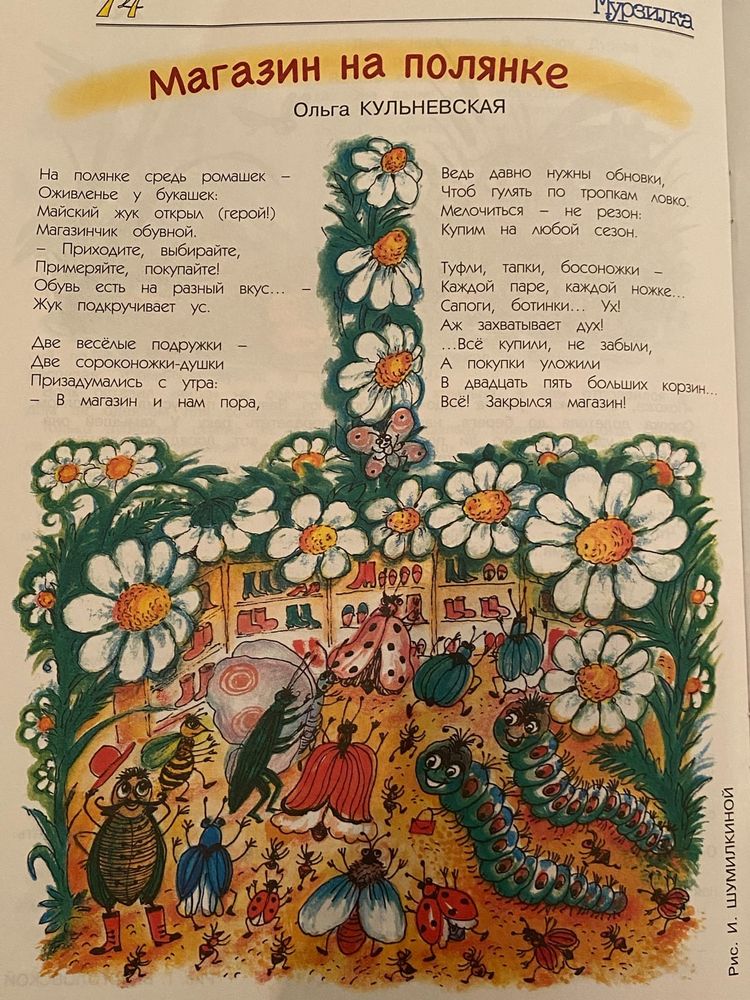 14
Мурзилка
Магазин на полянке
Ольга КУЛЬНЕВСКАЯ
На полянке средь ромашек –
Оживленье у букашек:
Майский жук открыл (герой!)
Магазинчик обувной.
– Приходите, выбирайте,
Примеряйте, покупайте!
Обувь есть на разный вкус... –
Жук подкручивает ус.
Две весёлые подружки –
Две сороконожки-душки
Призадумались с утра:
– В магазин и нам пора,
Ведь давно нужны обновки,
Чтоб гулять по тропкам ловко.
Мелочиться – не резон:
Купим на любой сезон.
Туфли, тапки, босоножки –
Каждой паре, каждой ножке...
Сапоги, ботинки... Ух!
Аж захватывает дух!
...Всё купили, не забыли,
А покупки уложили
В двадцать пять больших корзин...
Всё! Закрылся магазин!
Рис. И. ШУМИЛКИНОЙ